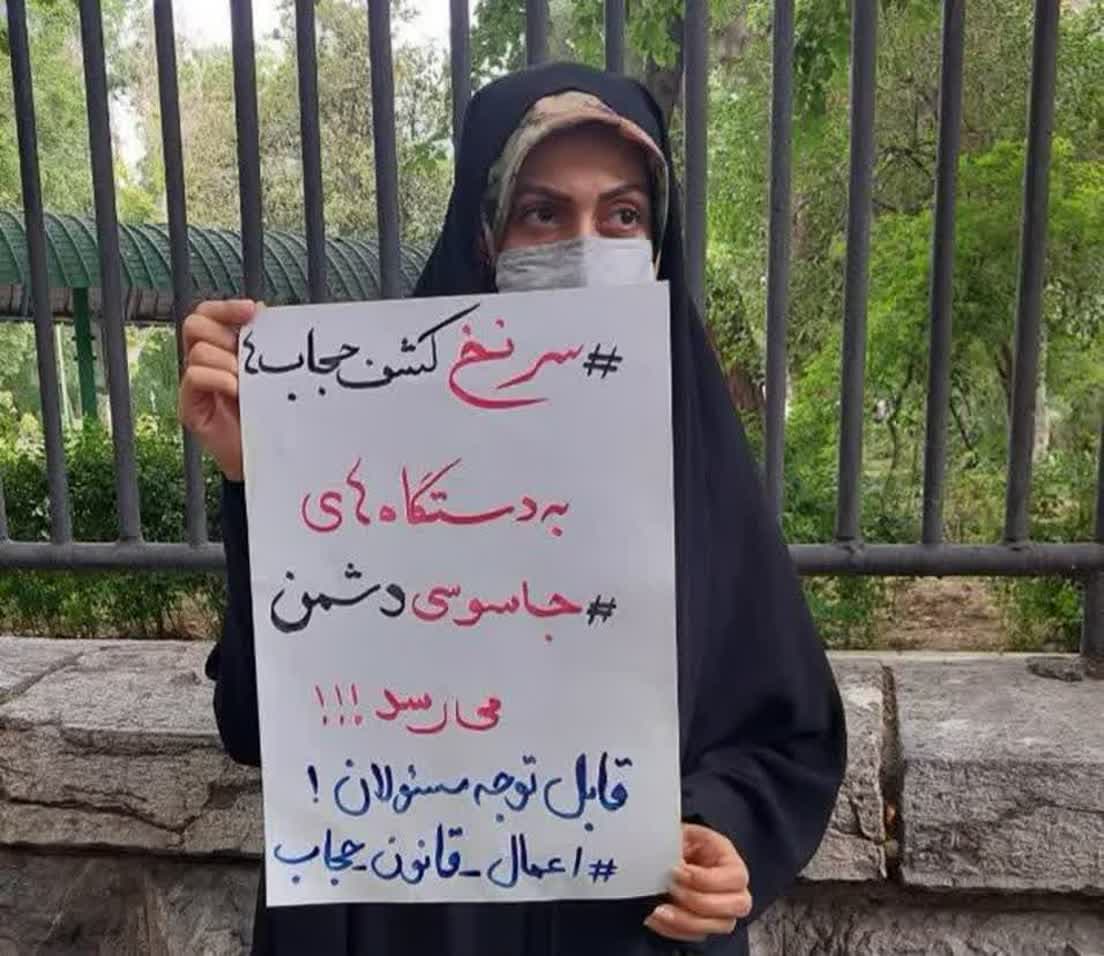 #سرنخ کشف حجاب ها
به دستگاه های
#جاسوسی دشمن
می رسد !!!
قابل توجه مسئولان !
#اعمال_قانون_حجاب